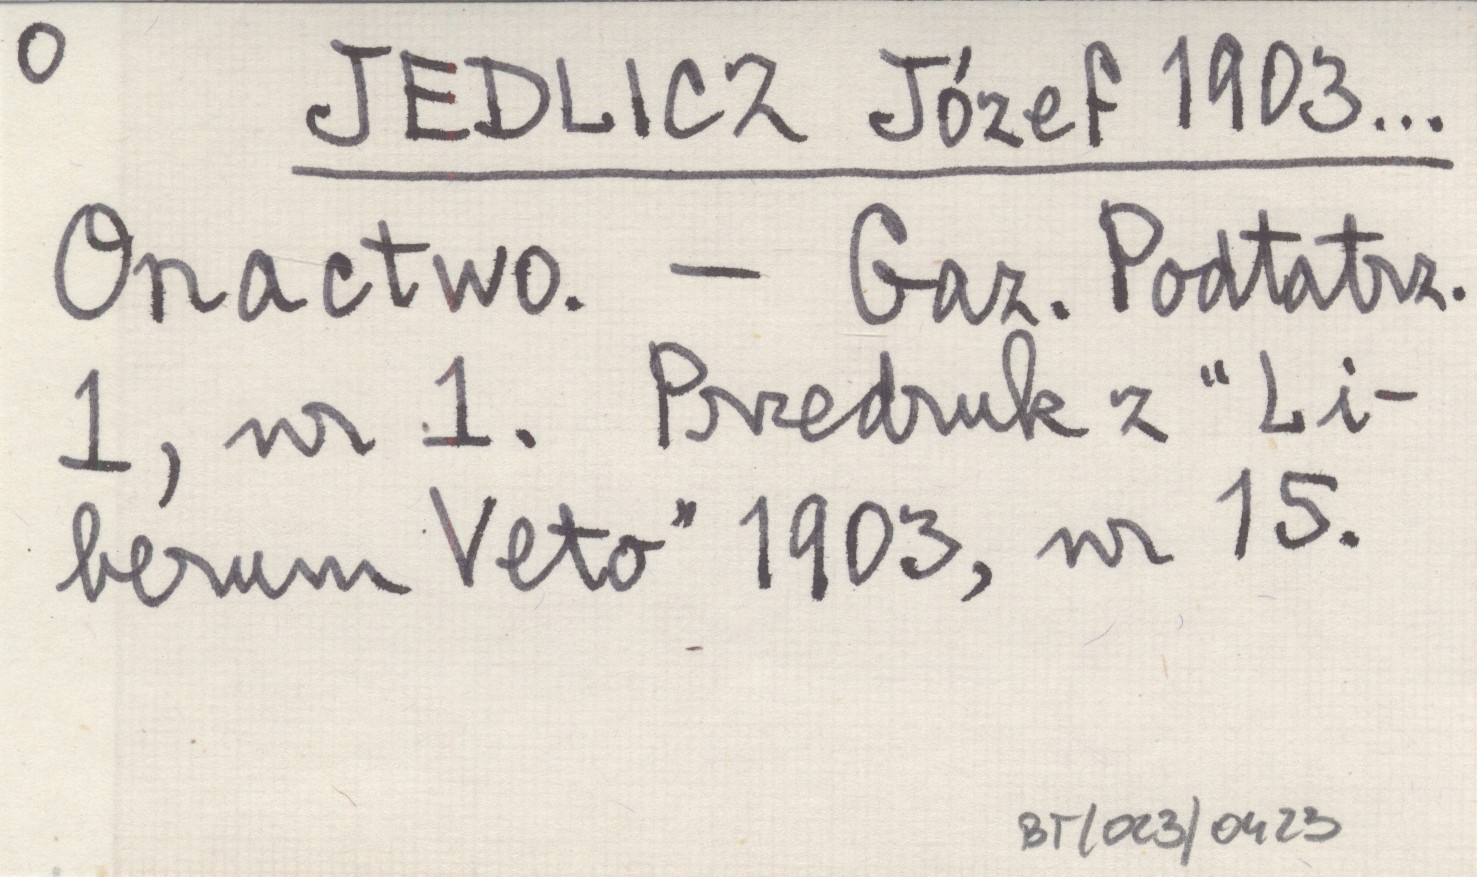 O JEDLICZ Józef 1903...
Onactwo. — Gaz. Podtatrz.
1, nr 1. Przedruk z "Li-
berum Veto" 1903, nr 15.
BT/023/0423